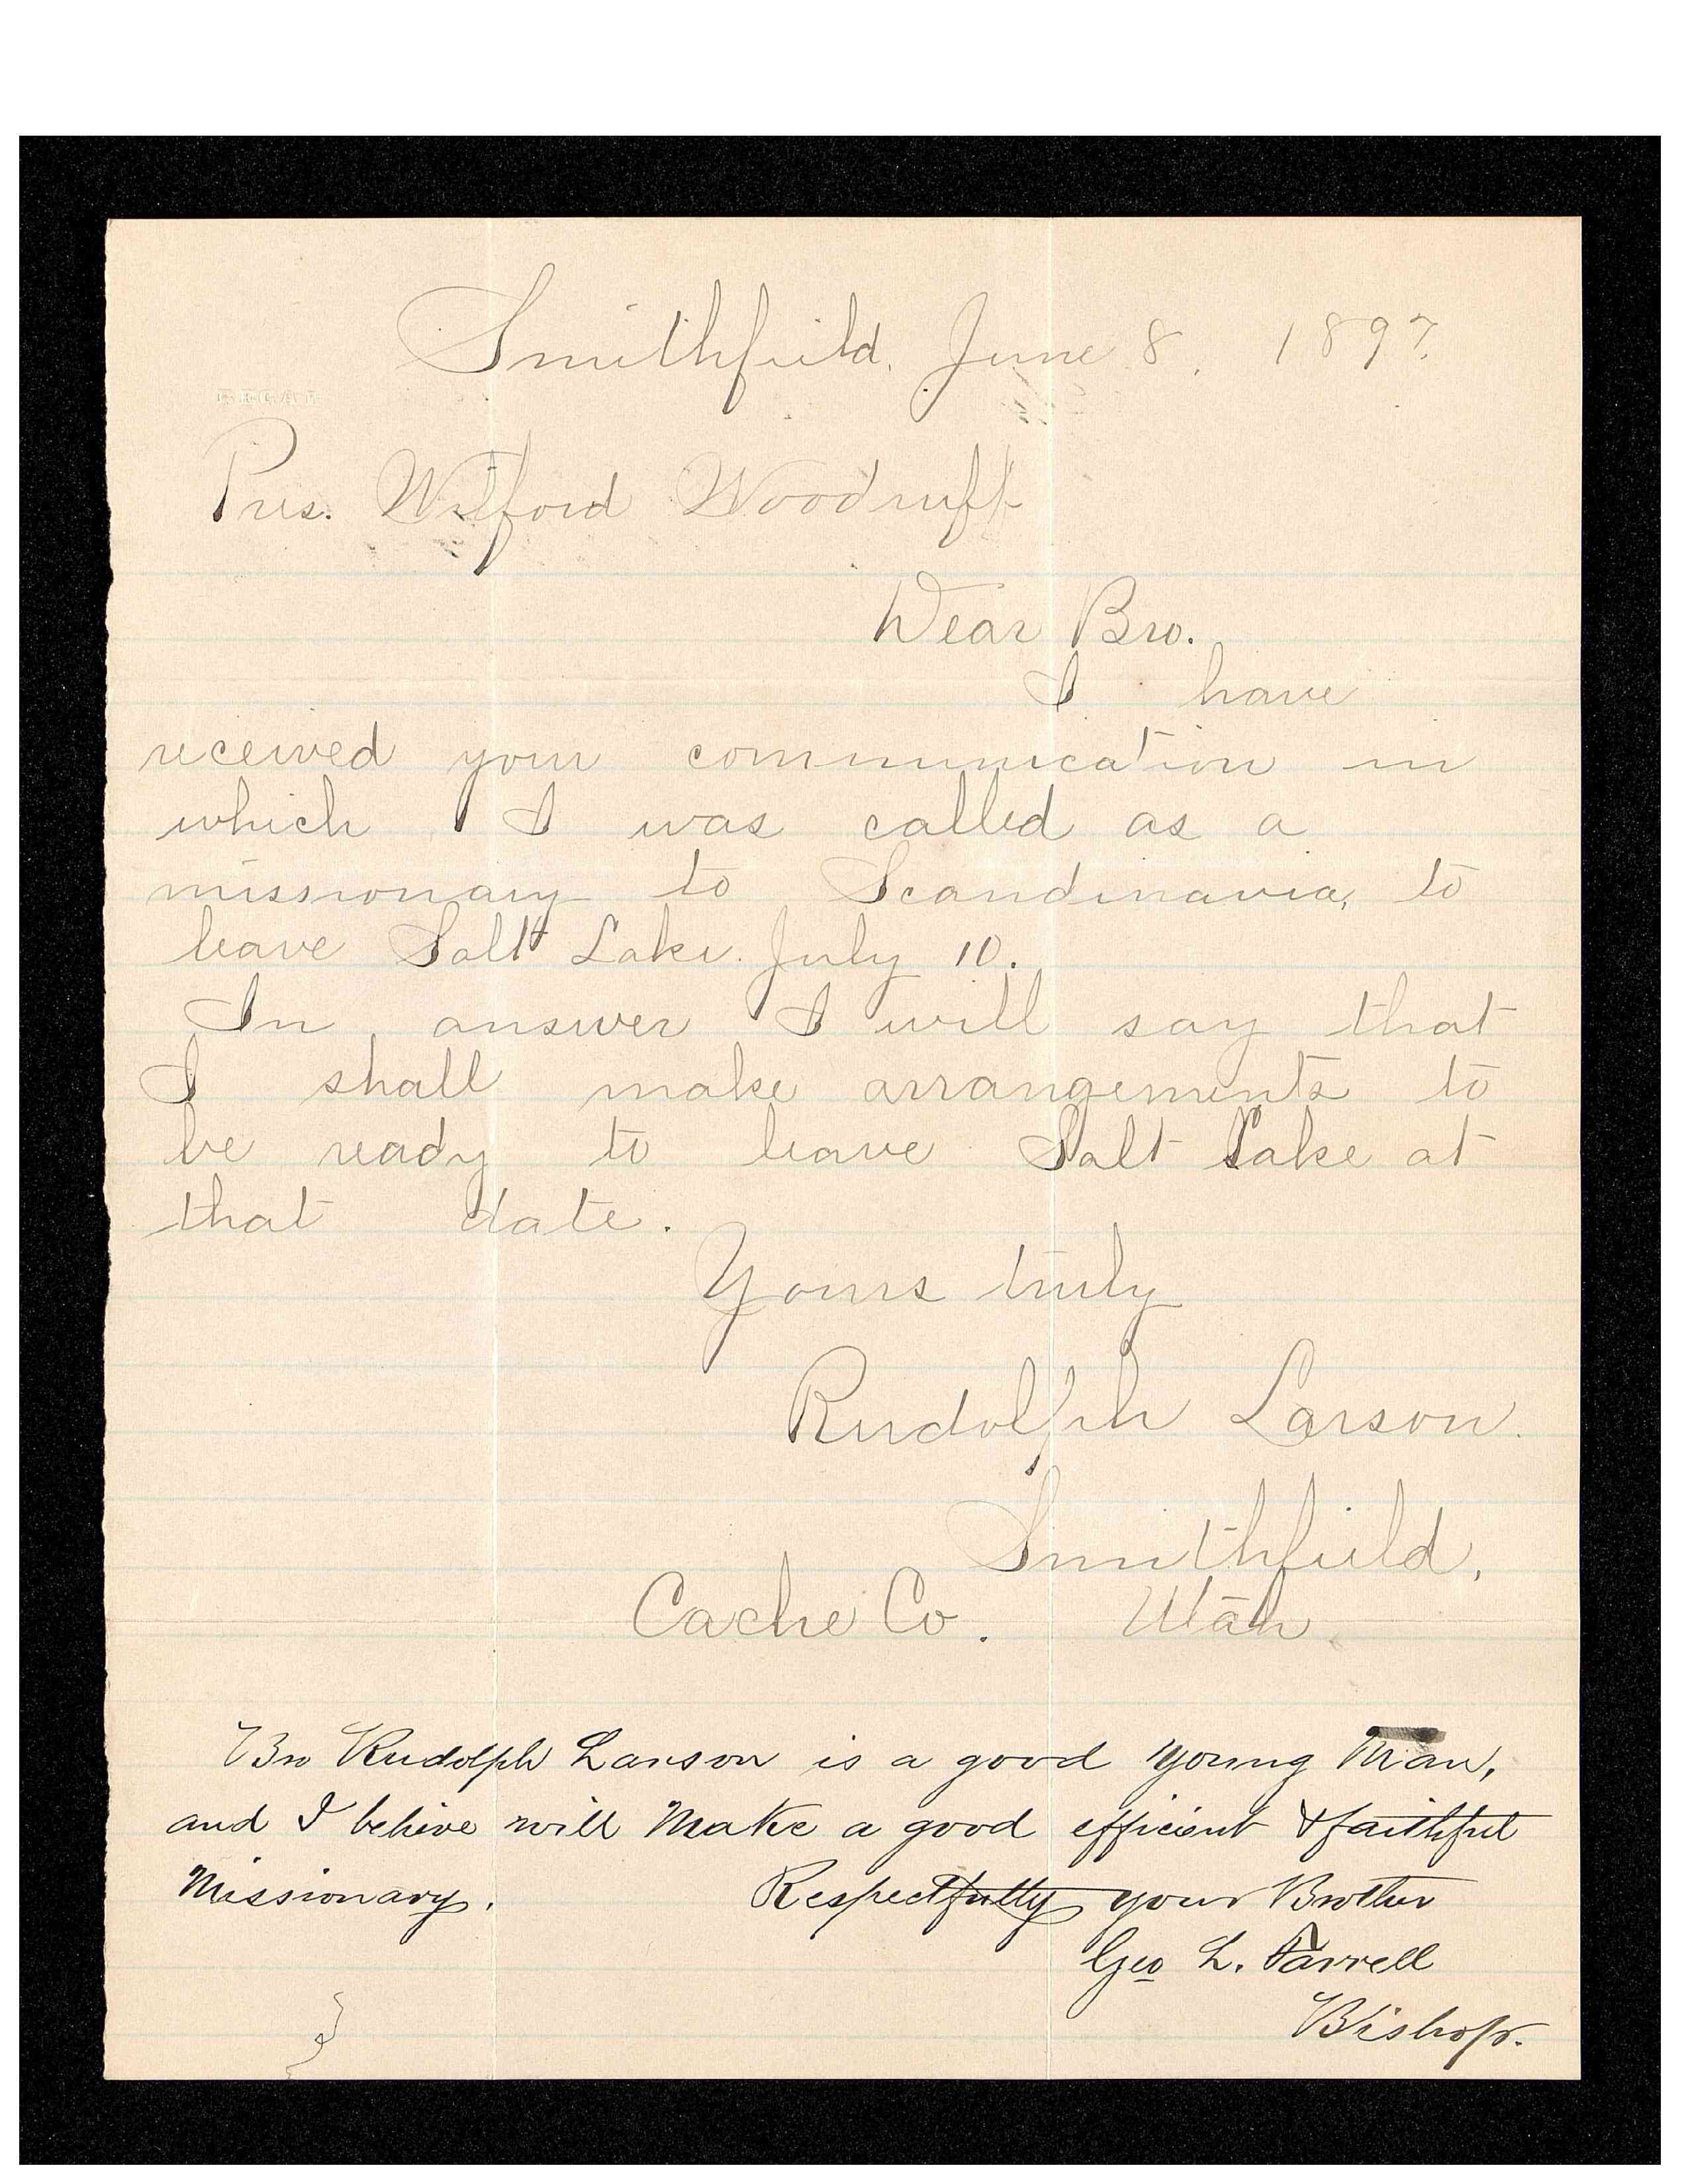 Smithfield, June 8, 1897.
Pres. Wilford Woodruff
Dear Bro.
I have
received your communication in
which I was called as a
missionary to Scandinavia, to
leave Salt Lake July 10.
In answer I will say that
I shall make arrangements to
be ready to leave Salt Lake at
that date.
Yours truly
Rudolph Larson.
Smithfield,
Cache Co. Utah.
Bro Rudolph Larson is a good young Man,
and I beleive will Make a good efficient & faithful
Missionary. Respectfully your Brother
Geo L. Farrell
Bishop.